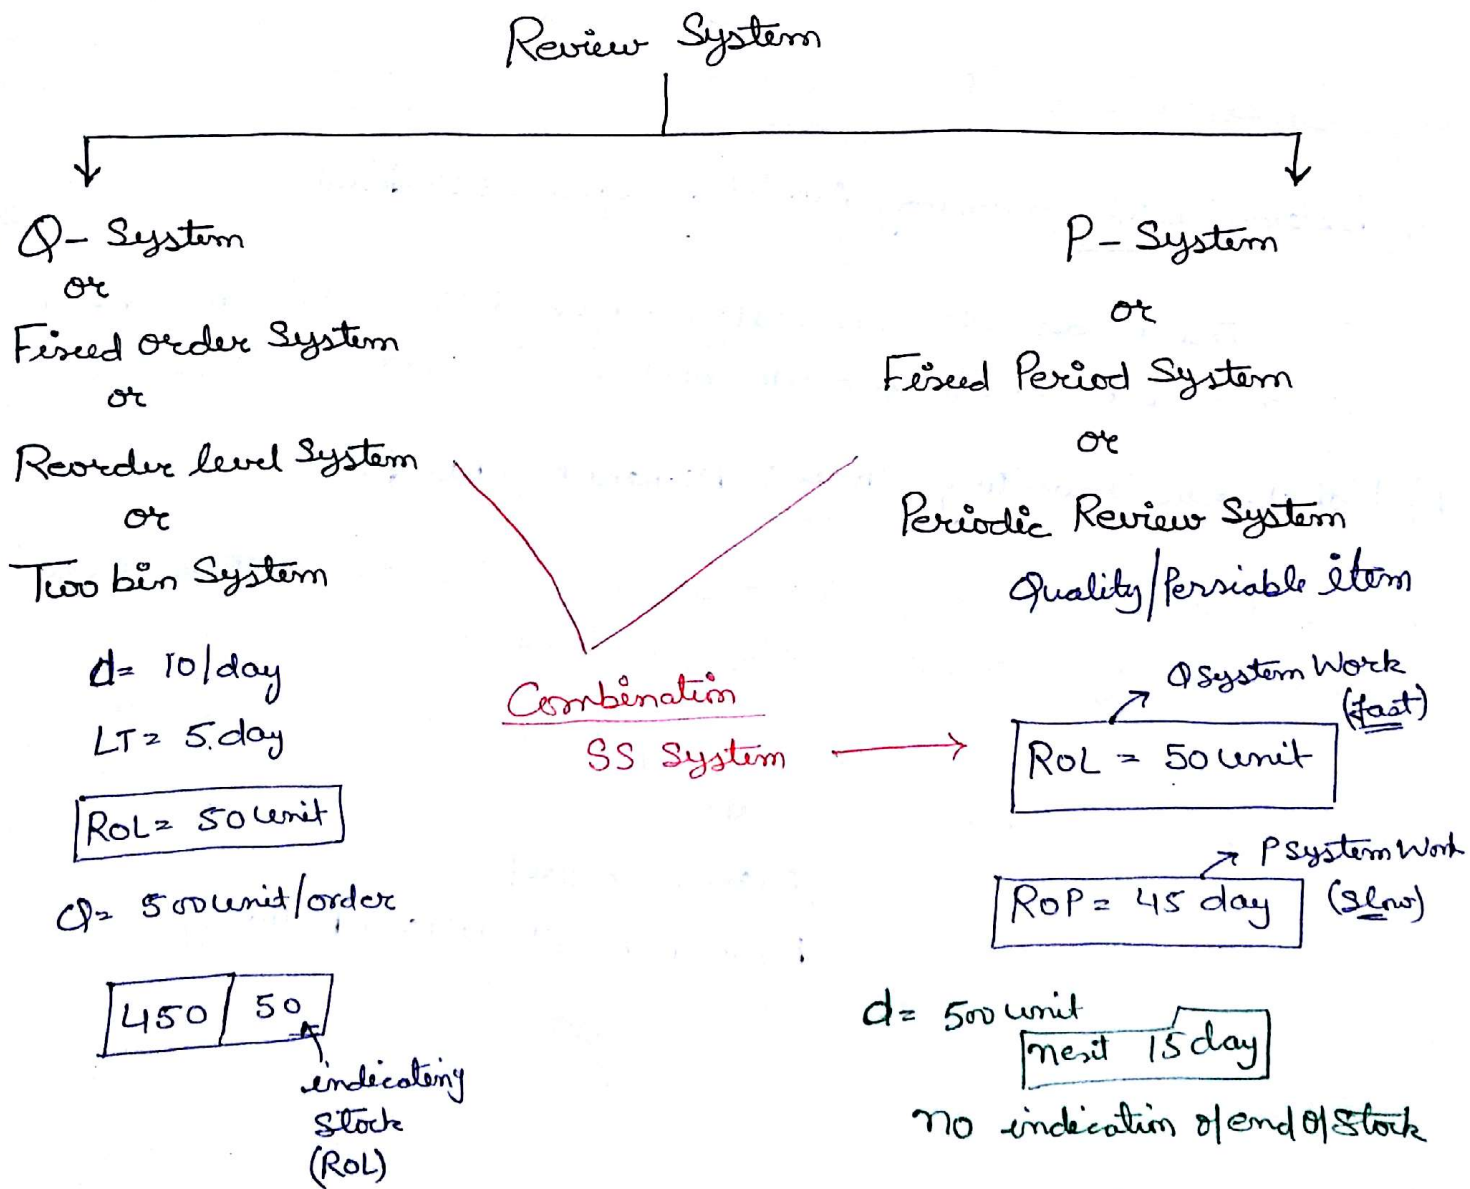 Review System
Q- System
or
Fixed order System
or
Reorder level System
or
Two bin System
d= 10/day
LT= 5.day
ROL= 50 unit
Q= 500 unit/order
450 50
indicating
Stock
(ROL)
Combination
SS System
P- System
or
Fixed Period System
or
Periodic Review System
Quality/Persiable item
Q System Work
(fast)
ROL = 50 unit
P System Work
ROP= 45 day (Slow)
d= 500 unit
next 15 day
no indication of end of Stock